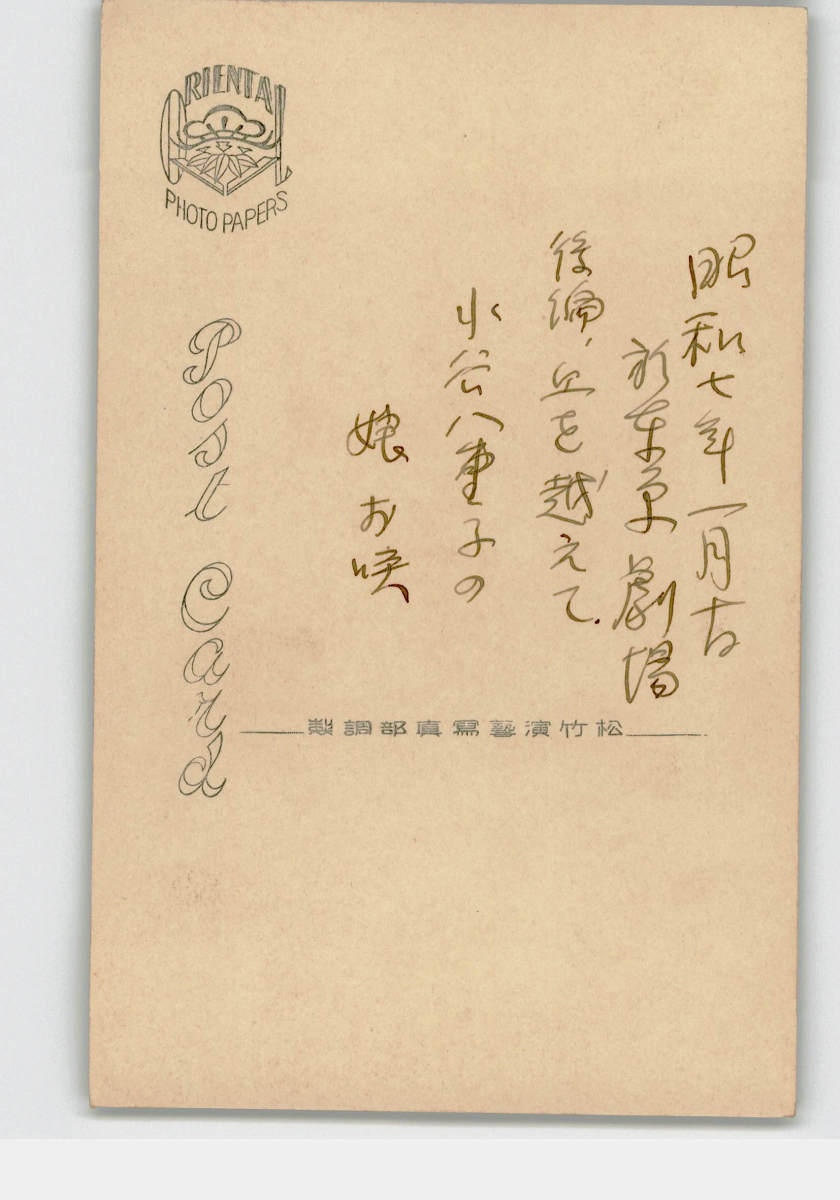 ORIENTAL
PHOTO PAPERS
Post Card
昭和七年一月
新東京劇場
後編、丘を越えて.
水谷八重子の
娘お咲
松竹演藝寫真部調製